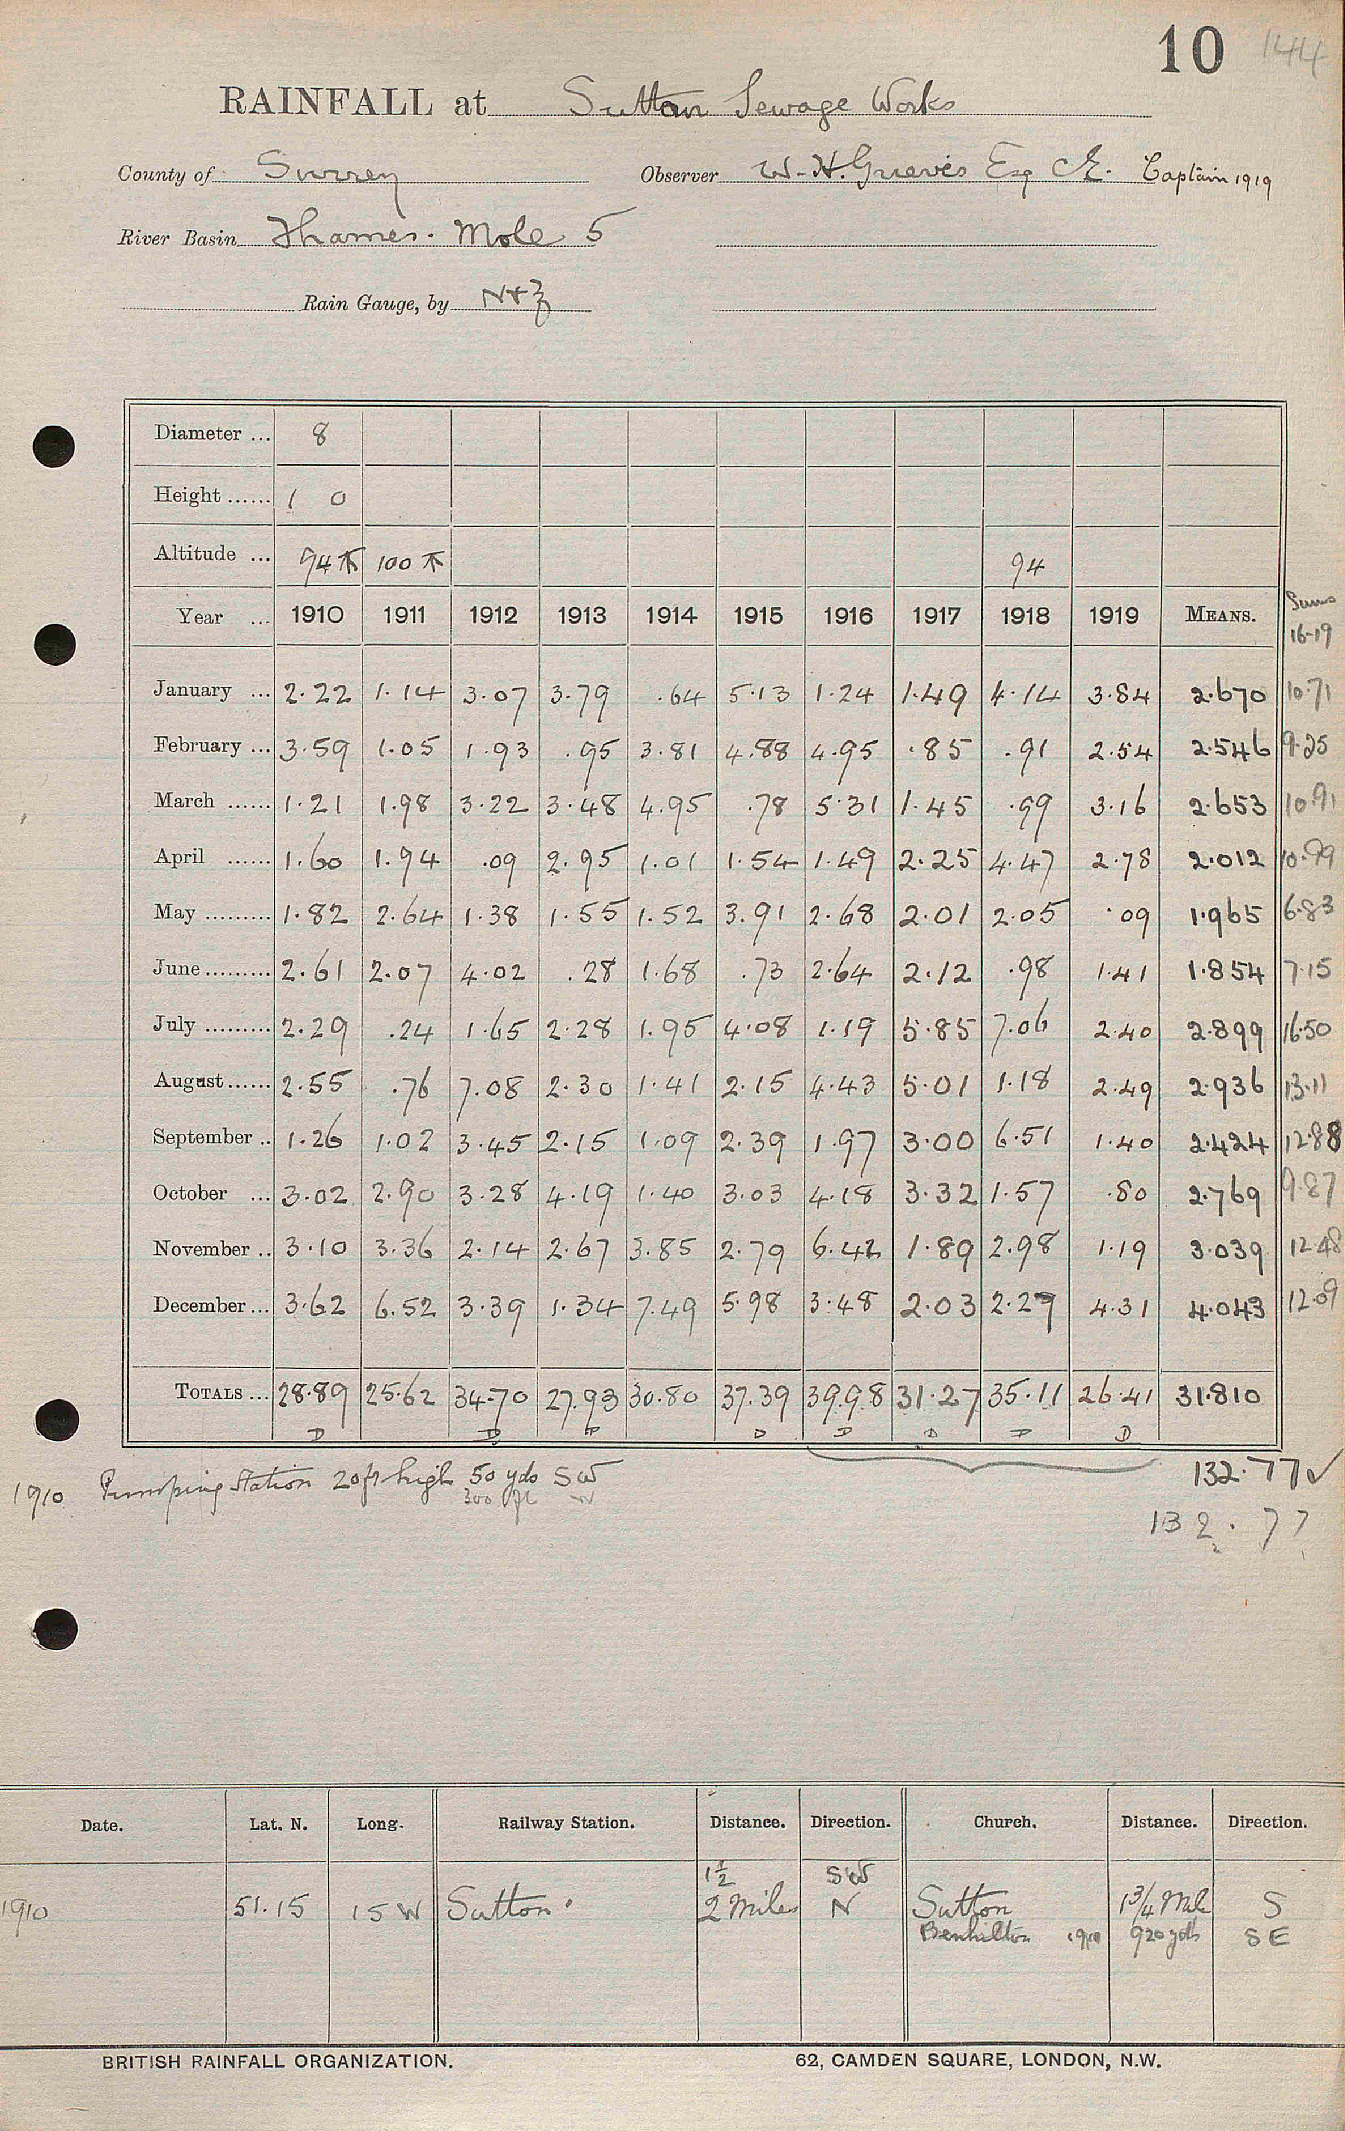 10 144
RAINFALL at Sutton Sewage Works
County of Surrey Observer W. H. Grieves Esq C.E. Captain 1919
River Basin Thames. Mole 5
Rain Gauge, by N+Z
Diameter ... 8
Height ...... 1 0
Altitude ... 94 100 94
Year ... 1910 1911 1912 1913 1914 1915 1916 1917 1918 1919 MEANS. Sums 16-19
January ... 2.22 1.14 3.07 3.79 .64 5.13 1.24 1.49 4.14 3.84 2.670 10.71
February ... 3.59 1.05 1.93 .95 3.81 4.88 4.95 .85 .91 2.54 2.546 9.25
March ...... 1.21 1.98 3.22 3.48 4.95 .78 5.31 1.45 .99 3.16 2.653 10.91
April ...... 1.60 1.94 .09 2.95 1.01 1.54 1.49 2.25 4.47 2.78 2.012 10.99
May ......... 1.82 2.64 1.38 1.55 1.52 3.91 2.68 2.01 2.05 .09 1.965 6.83
June ......... 2.61 2.07 4.02 .28 1.68 .73 2.64 2.12 .98 1.41 1.854 7.15
July ......... 2.29 .24 1.65 2.28 1.95 4.08 1.19 5.85 7.06 2.40 2.899 16.50
August ...... 2.55 .76 7.08 2.30 1.41 2.15 4.43 5.01 1.18 2.49 2.936 13.11
September .. 1.26 1.02 3.45 2.15 1.09 2.39 1.97 3.00 6.51 1.40 2.424 12.88
October ... 3.02 2.90 3.28 4.19 1.40 3.03 4.18 3.32 1.57 .80 2.769 9.87
November .. 3.10 3.36 2.14 2.67 3.85 2.79 6.42 1.89 2.98 1.19 3.039 12.48
December ... 3.62 6.52 3.39 1.34 7.49 5.98 3.48 2.03 2.27 4.31 4.043 12.09
TOTALS ... 28.89 25.62 34.70 27.93 30.80 37.39 39.98 31.27 35.11 26.41 31.810
D D D D D D D D
132.77 ✓
1910 Pumping Station 20ft high 50 yds SW
300 ft W
132.77
Date. Lat. N. Long. Railway Station. Distance. Direction. Church. Distance. Direction.
1½ SW
1910 51.15 15 W Sutton. 2 Miles N Sutton 1¾ Mile S
Benhilton 920 yds SE
BRITISH RAINFALL ORGANIZATION. 62, CAMDEN SQUARE, LONDON, N.W.